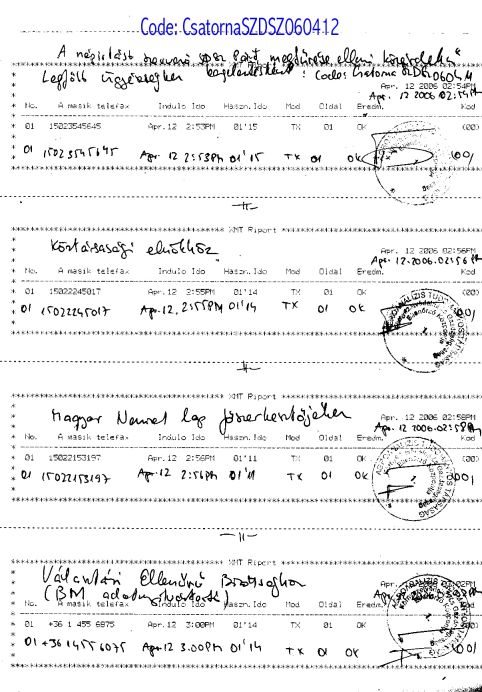 Code: CsatornaSZDSZ060412
A népirtást szervező SZDSZ párt megszűnése elleni közérdekű
Legfőbb Ügyészségben bejelentésként : Codes Csatorna SZDSZ 060411
Apr. 12 2006 02:54PM
Apr. 12 2006 02:54PM
No. A masik telefax Indulo Ido Haszn.Ido Mod Oldal Eredm. Kod
01 15023545645 Apr.12 2:53PM 01'15 TX 01 OK (00)
01 15023545645 Apr. 12 2:53PM 01'15 TX 01 OK
XMT Riport
Köztársasági elnökhöz
Apr. 12 2006 02:56PM
Apr. 12. 2006. 02:56PM
No. A masik telefax Indulo Ido Haszn.Ido Mod Oldal Eredm. Kod
01 15022245017 Apr.12 2:55PM 01'14 TX 01 OK (00)
01 15022245017 Apr. 12. 2:55PM 01'14 TX 01 OK
XMT Riport
Magyar Nemzet lap főszerkesztőjéhez
Apr. 12 2006 02:58PM
Apr. 12 2006. 02:58PM
No. A masik telefax Indulo Ido Haszn.Ido Mod Oldal Eredm. Kod
01 15022153197 Apr.12 2:56PM 01'11 TX 01 OK (00)
01 15022153197 Apr. 12 2:56PM 01'11 TX 01 OK
XMT Riport
Választási Ellenőrző Bizottsághoz
(BM
Apr.
No. A masik telefax Indulo Ido Haszn.Ido Mod Oldal Eredm. Kod
01 +36 1 455 6875 Apr.12 3:00PM 01'14 TX 01 OK (00)
01 +36 1455 6875 Apr. 12 3:00PM 01'14 TX 01 OK